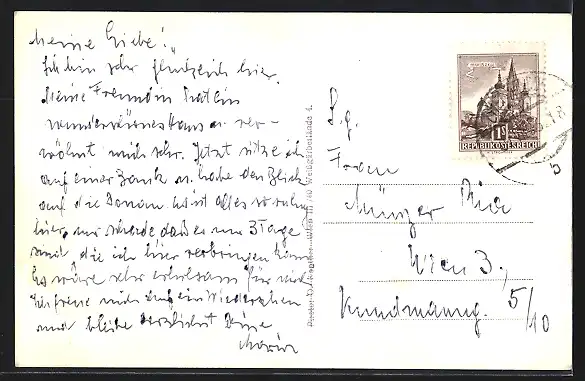 Meine Liebe!
Ich bin sehr glücklich hier.
Meine Freundin hat ein
wunderschönes Haus u. ver-
wöhnt mich sehr. Jetzt sitze ich
auf einer Bank u. habe den Blick
auf die Donau. Es ist alles so ruhig
hier, nur schade daß es nur 3 Tage
sind, die ich hier verbringen kann.
Es wäre sehr erholsam für mich
Ich freue mich auf ein Wiedersehen
und bleibe herzlichst Deine
Maria
REPUBLIK ÖSTERREICH
Frau
Münzer Mia
Wien 3.,
Kundmanng. 5/10